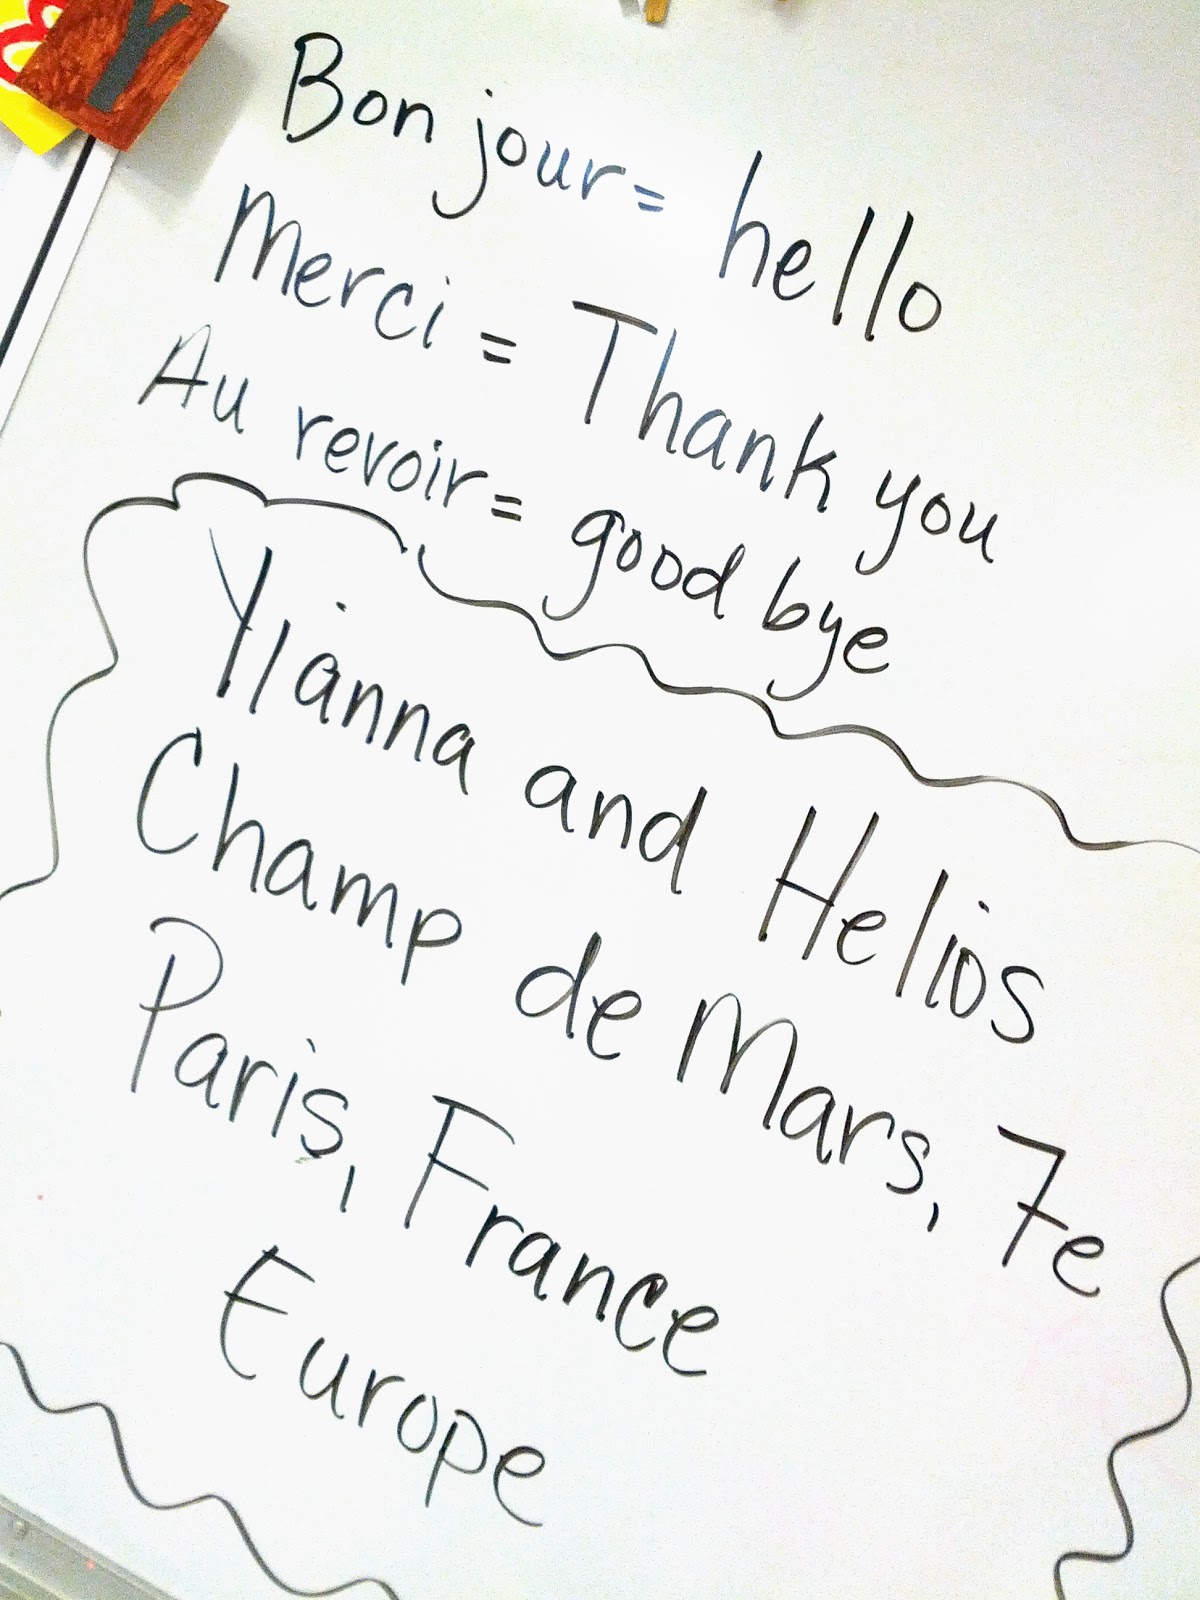 Y
Bonjour = hello
Merci = Thank you
Au revoir = good bye
Ylianna and Helios
Champ de Mars, 7e
Paris, France
Europe